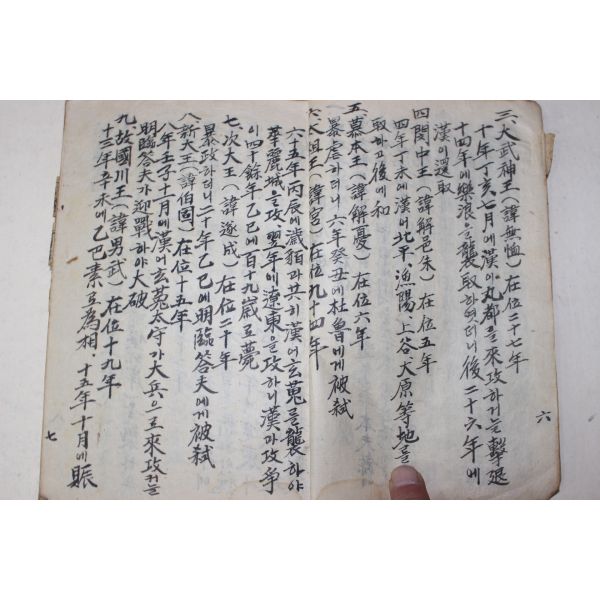 三、大武神王(諱無恤)在位二十七年
十年丁亥七月에漢이丸都을來攻하거늘擊退
十四年에樂浪을襲取하엿더니後二十六年에
漢이還取
四 閔中王(諱解邑朱)在位五年
四年丁未에漢에北平、漁陽、上谷、犬原等地를
取하고後에和
五 慕本王(諱解憂)在位六年
暴虐하더니六年癸丑에杜魯에게被弑
六、太祖王(諱宮)在位九十四年
六十五年丙辰에濊貊과共히漢에玄菟를襲하야
華麗城을攻 翌年에遼東을攻하니漢과攻爭
이四十餘年乙巳에百十九歲로薨
七、次大王(諱遂成)在位二十年
暴政하더니二十年乙巳에明臨答夫에게被弑
八、新大王(諱伯固)在位十五年
八年壬子十月에漢에玄菟太守가大兵으로來攻커늘
明臨答夫가迎戰하야大破
九、故國川王(諱男武)在位十九年
十三年辛未에乙巴素로為相、十五年十月에賑
六
七